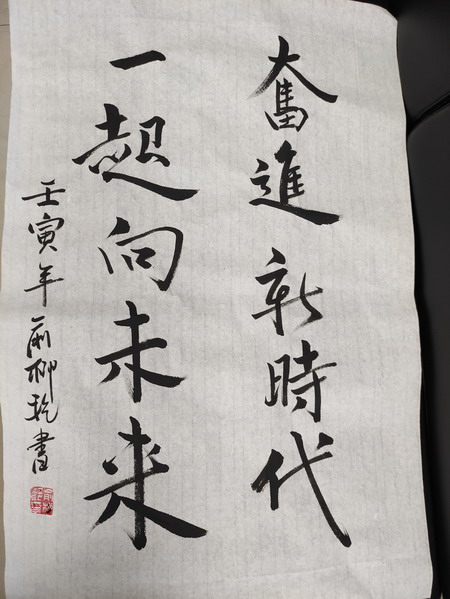 奮進新時代
一起向未來
壬寅年柳書